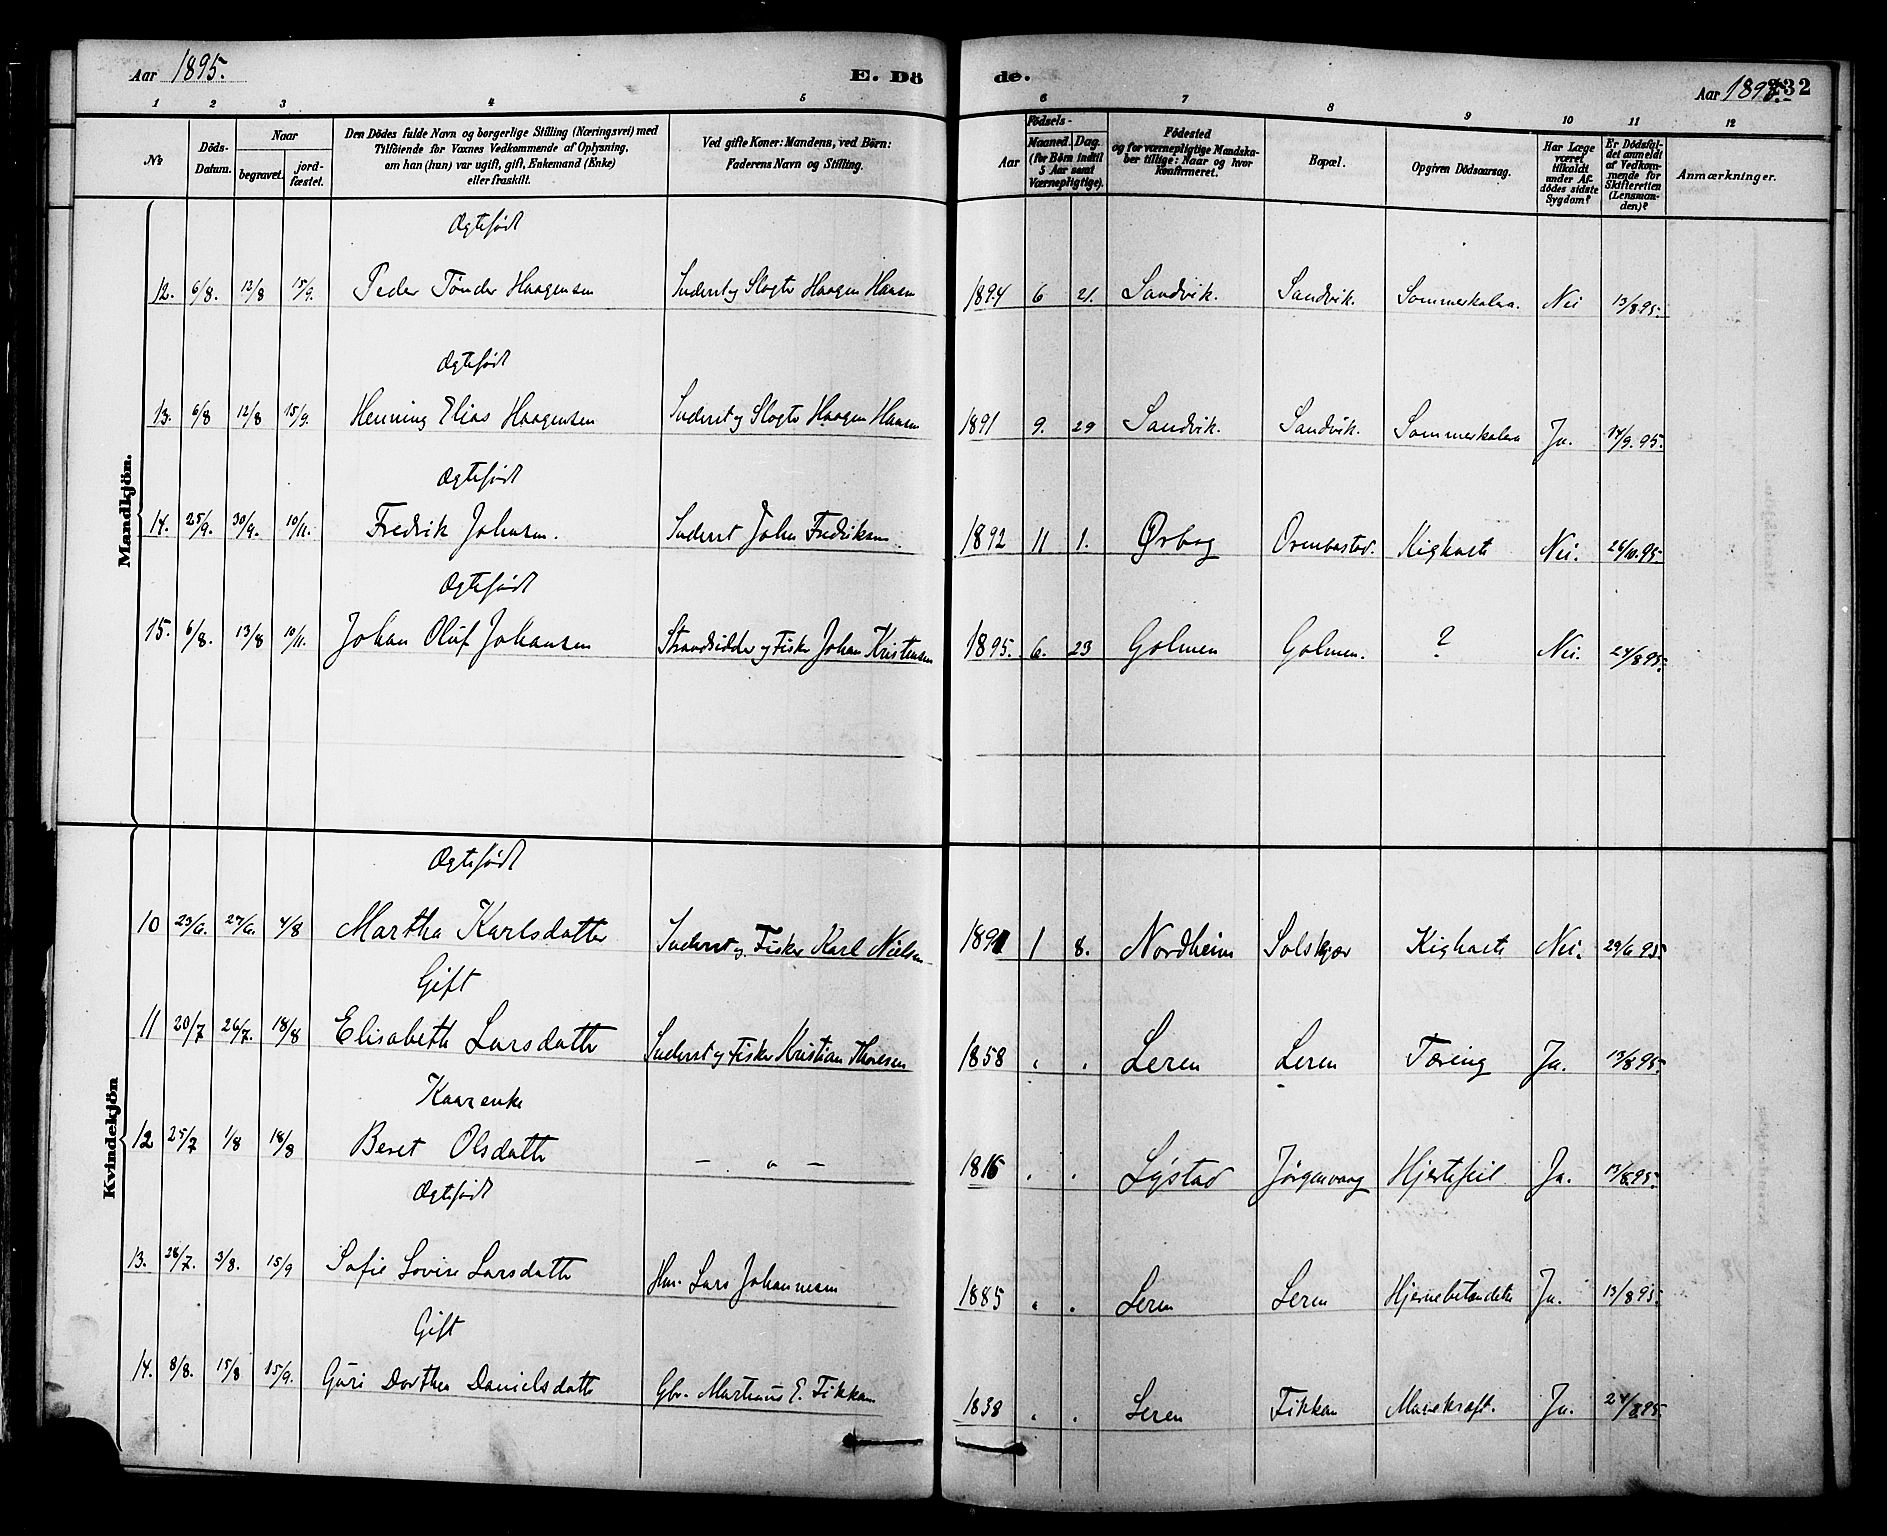 Aar 1895. E. Dö de. Aar 1895. 232
1 2 3 4 5 6 7 8 9 10 11 12
No
Döds-Datum.
Naar
begravet.
jord-fæstet.
Den Dödes fulde Navn og borgerlige Stilling (Næringsvei) med
Tilföiende for Voxnes Vedkommende af Oplysning,
om han (hun) var ugift, gift, Enkemand (Enke)
eller fraskilt.
Ved gifte Koner: Mandens, ved Börn:
Faderens Navn og Stilling.
Födsels-
Aar
Maaned.
Dag.
(for Börn indtil
5 Aar samt
Værnepligtige).
Födested
og for værnepligtige Mandska-
ber tillige: Naar og hvor
konfirmeret.
Bopæl.
Opgiven Dödsaarsag.
Har Læge
været
tilkaldt
under Af-
dödes sidste
Sygdom?
Er Dödsfal-
det anmeldt
af Vedkom-
mende for
Skifteretten
(Lensman-
den)?
Anmærkninger.
Mandkjön.
Ægtefödt
12. 6/8. 12/8 15/9. Peder Tönder Haagensen Inderst og Slagter Haagen Hansen 1894 6 21. Sandvik. Sandvik. Sommerkolera. Nei 13/8 95.
Ægtefödt
13. 6/8 12/8 15/9. Henning Elias Haagensen Inderst og Slagter Haagen Hansen 1891 9. 29 Sandvik. Sandvik. Sommerkolera Ja. 14/9. 95.
Ægtefödt
14. 25/9. 30/9. 10/11. Fredrik Johnsen. Inderst John Fredriksen. 1892 11 1. Ørbog Orenbostad. Kighoste Nei. 26/10. 95.
Ægtefödt
15. 6/8. 13/8 10/11. Johan Oluf Johansen Strandsidder og Fisker Johan Kristensen 1895. 6. 23 Golmen Golmen. ? Nei. 24/8 95.
Kvindekjön
Ægtefödt
10 23/6. 27/6. 4/8 Martha Karlsdatter Inderst og Fisker Karl Nielsen 1891 1 8. Nordheim Solskjær Kighoste Nei. 29/6 95.
Gift
11 20/7 26/7. 18/8 Elisabeth Larsdatter Inderst og Fisker Kristian Thoresen 1858 Leren Leren Tæring Ja. 13/8 95.
Kaarenke
12 25/7 1/8 18/8 Beret Olsdatter — „ — 1816 Lystad Jörgenvaag Hjertefeil Ja. 13/8 95.
Ægtefödt
13. 28/7. 3/8. 15/9 Sofie Lovise Larsdatter Hm. Lars Johannesen 1885 Leren Leren Hjernebetændelse Ja. 13/8 95.
Gift
14. 8/8. 15/8 15/9. Guri Dorthea Danielsdatter Gbr. Martinus E. Fikkan 1838 Leren Fikkan Mavekræft. Ja. 24/8 95.